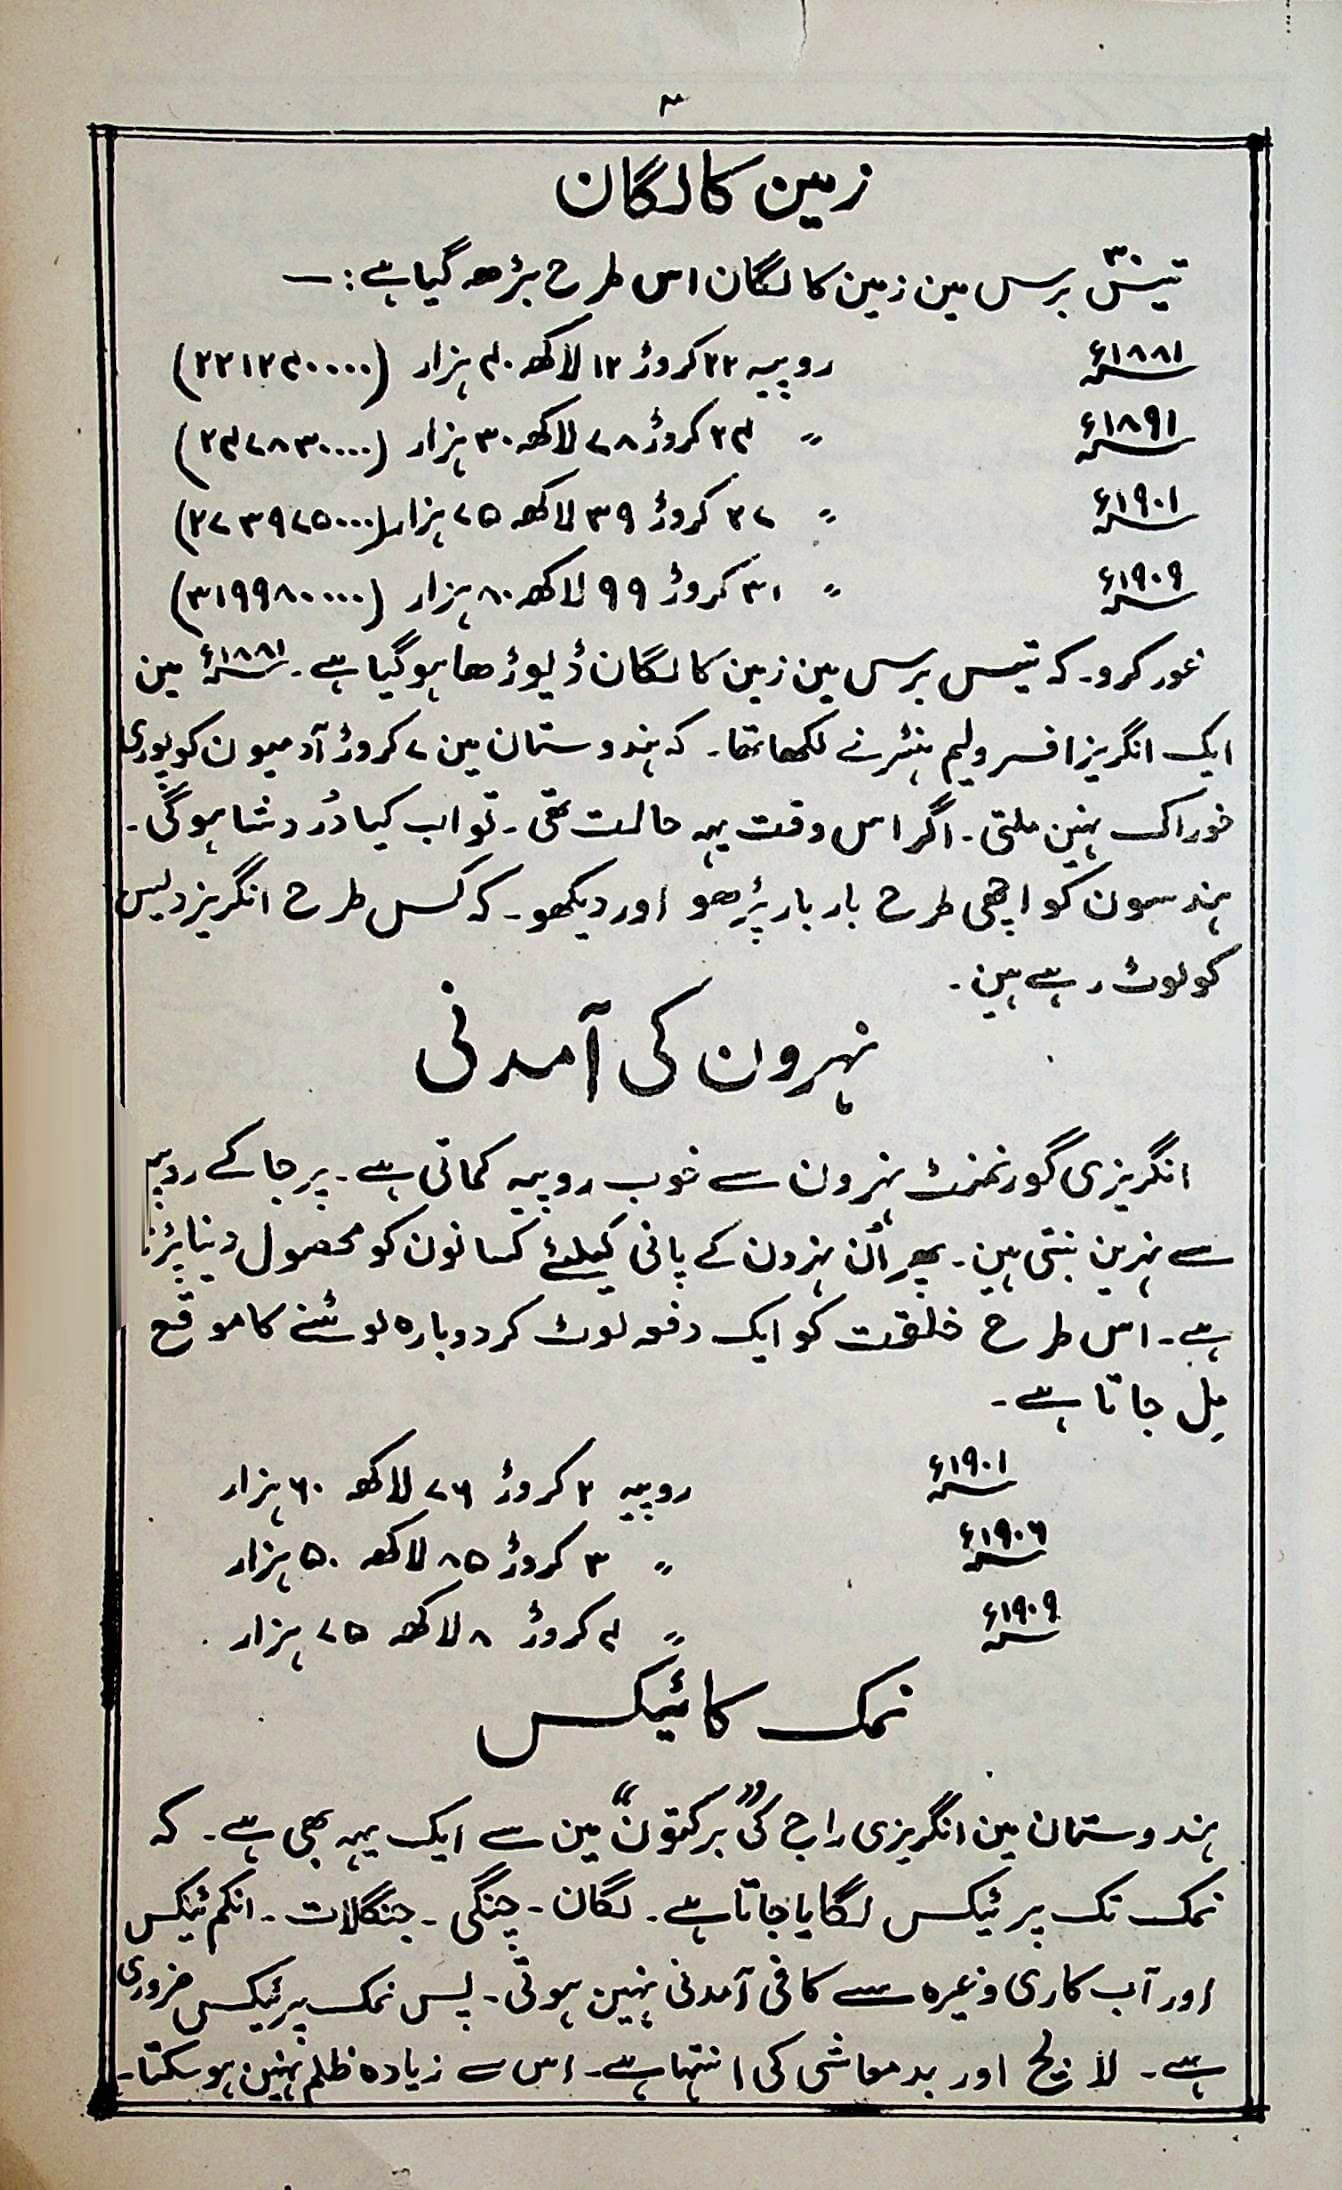 ۳
زمین کا لگان
تیس۳۰ برس مین زمین کا لگان اس طرح بڑھ گیا ہے :—
۱۸۸۱ء روپیہ ۲۲ کروڑ ۱۲ لاکھ ۴۰ ہزار (۲۲۱۲۴۰۰۰۰)
۱۸۹۱ء 〃 ۲۴ کروڑ ۷۸ لاکھ ۳۰ ہزار (۲۴۷۸۳۰۰۰۰)
۱۹۰۱ء 〃 ۲۷ کروڑ ۳۹ لاکھ ۷۵ ہزار (۲۷۳۹۷۵۰۰۰)
۱۹۰۹ء 〃 ۳۱ کروڑ ۹۹ لاکھ ۸۰ ہزار (۳۱۹۹۸۰۰۰۰)
غور کرو۔ کہ تیس برس مین زمین کا لگان ڈیوڑھا ہو گیا ہے۔ ۱۸۸۱ء مین
ایک انگریز افسر ولیم ہنٹر نے لکھا تھا۔ کہ ہندوستان مین ۷ کروڑ آدمیون کو پوری
خوراک نہین ملتی۔ اگر اس وقت یہہ حالت تھی۔ تو اب کیا دُردشا ہوگی۔
ہندسون کو اچھی طرح بار بار پڑھو اور دیکھو۔ کہ کس طرح انگریز دیس
کو لوٹ رہے ہین۔
نہرون کی آمدنی
انگریزی گورنمنٹ نہرون سے خوب روپیہ کماتی ہے۔ پرجا کے روپیہ
سے نہرین بنتی ہین۔ پھر اُن نہرون کے پانی کیلئے کسانون کو محصول دینا پڑتا
ہے۔ اس طرح خلقت کو ایک دفعہ لوٹ کر دوبارہ لوٹنے کا موقع
مِل جاتا ہے۔
۱۹۰۱ء روپیہ ۲ کروڑ ۷۶ لاکھ ۶۰ ہزار
۱۹۰۶ء 〃 ۳ کروڑ ۸۵ لاکھ ۵۰ ہزار
۱۹۰۹ء 〃 ۴ کروڑ ۸ لاکھ ۷۵ ہزار
نمک کا ٹیکس
ہندوستان مین انگریزی راج کی ”برکتون“ مین سے ایک یہہ بھی ہے۔ کہ
نمک تک پر ٹیکس لگایا جاتا ہے۔ لگان۔ چنگی۔ جنگلات۔ انکم ٹیکس
اور آب کاری وغیرہ سے کافی آمدنی نہین ہوتی۔ پس نمک پر ٹیکس ضروری
ہے۔ لالچ اور بدمعاشی کی انتہا ہے۔ اس سے زیادہ ظلم نہین ہو سکتا۔